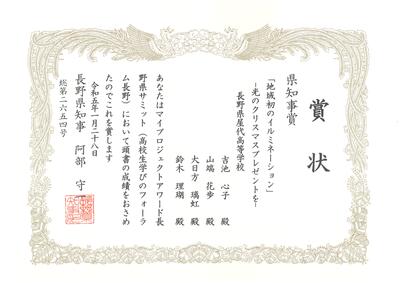 賞状
県知事賞
「地域初のイルミネーション」
―光のクリスマスプレゼントを―
長野県屋代高等学校
吉池 心子 殿
山端 花歩 殿
大日方 璃虹 殿
鈴木 理瑚 殿
あなたはマイプロジェクトアワード長
野県サミット(高校生学びのフォーラ
ム長野)において頭書の成績をおさめ
たのでこれを賞します
令和五年一月二十八日
長野県知事 阿部 守
総第二六五四号